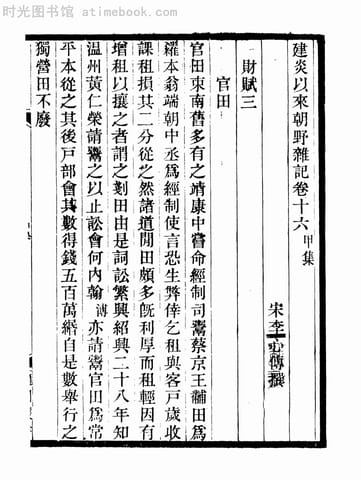 时光图书馆 atimebook.com
建炎以來朝野雜記卷十六 甲集
宋李心傳撰
財賦三
官田
官田東南舊多有之靖康中嘗命經制司鬻蔡京王黼田爲
糴本翁端朝中丞爲經制使言恐生弊倖乞租與客戶歲收
課租損其二分從之然諸道閒田頗多旣利厚而租輕因有
增租以攘之者謂之剗田由是詞訟繁興紹興二十八年知
温州黃仁榮請鬻之以止訟會何内翰溥亦請鬻官田爲常
平本從之其後戸部會其數得錢五百萬緡自是數舉行之
獨營田不廢